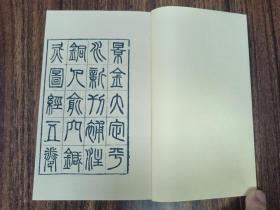 景金大定平
水新刊補注
銅人腧穴鍼
灸圖經五卷